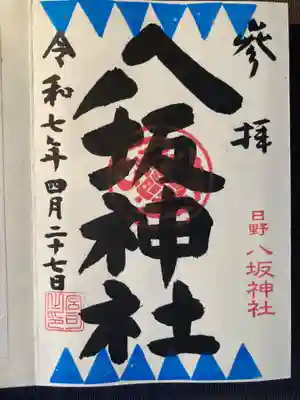 參拝
八坂神社
日野 八坂神社
令和七年四月二十七日